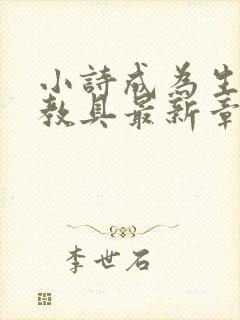 小詩成為生
教具最新章
李世石